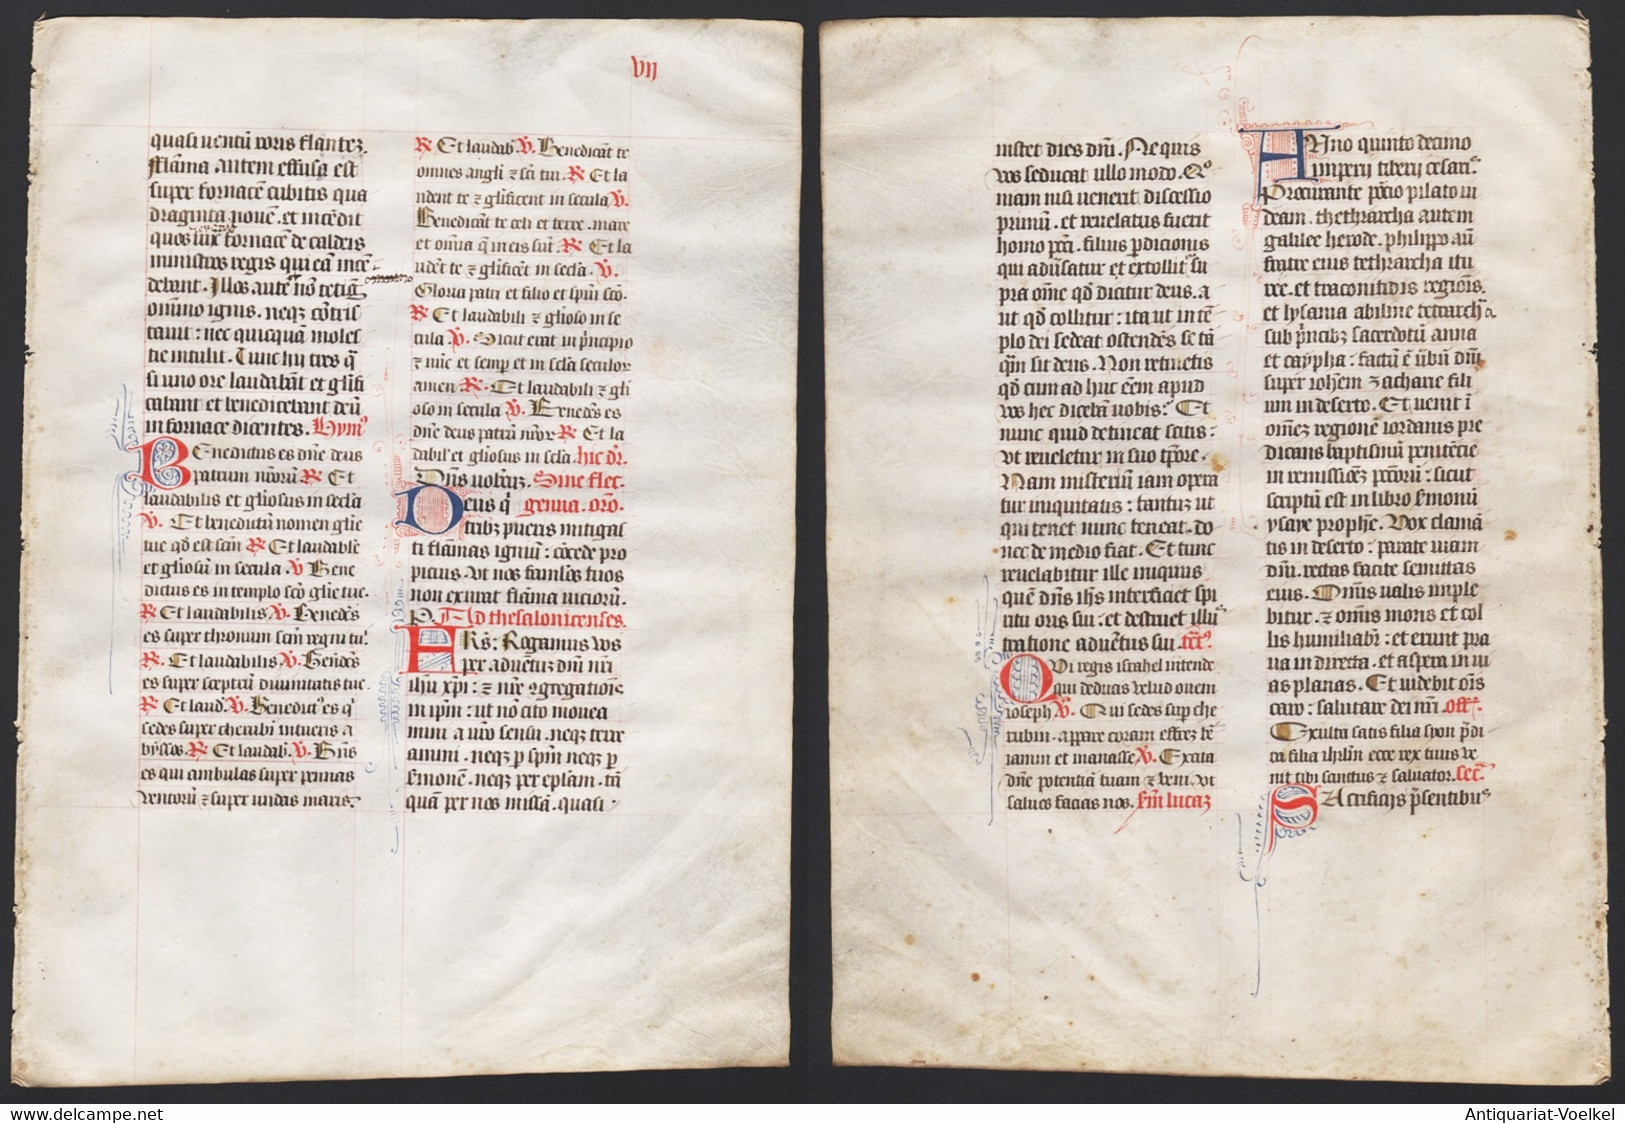 VII
quasi uentū roris flantez.
Flāma autem effusa est
super fornacem cubitis qua
draginta nouē. et incēdit
quos iux̄ fornacē de caldeis
ministros regis qui eā incē
debant. Illos autē nō tetig
omīno ignis. neqz cōtris
tauit: nec quicquā moles
tie intulit. Tunc hij tres q̄
si uno ore laudabāt et glifi
cabant et benedicebant deū
in fornace dicentes. hymꝰ
BEnedictus es dn̄e deus
patrum nr̄orū ℟ Et
laudabilis et gliosus in secla
℣. Et benedictū nomen glie
tue qd̄ est scm̄ ℟ Et laudabile
et gliosum in secula ℣ Bene
dictus es in templo sco glie tue.
℟ Et laudabilis ℣. Benedc̄s
es super thronum scm̄ regni tui.
℟. Et laudabilis ℣. Benedc̄s
es super sceptrū diuinitatis tue.
℟ Et laud. ℣. Benedictꝰ es q̄
sedes super cherubī intueris a
byssos. ℟ Et laudab. ℣. Bn̄s
es qui ambulas super pennas
ventorū ⁊ super undas maris.
℟ Et laudab. ℣. Benedicāt te
omnes angli ⁊ scī tui. ℟ Et la
udent te ⁊ glificent in secula ℣.
Benedicāt te celi et terre. mare
et om̄ia q̄ in eis sūt. ℟ Et la
udēt te ⁊ glificēt in secla. ℣.
Gloria patri et filio et spūi sco.
℟ Et laudabili ⁊ glioso in se
cula. ℣. Sicut erat in pn̄cipio
⁊ nūc et semp et in secla seculor
amen. ℟. Et laudabili ⁊ gli
oso in secula ℣. Benedc̄s es
dn̄e deus patrū nr̄or ℟ Et la
dabil et gliosus in secla. hic dr̄.
Dn̄s uobcz. Sine flec
DEus q̄ genua. oro.
tribz pueris mitigas
ti flāmas igniū: cōcede pro
picius. vt nos famlōs tuos
non exurat flāma uiciorū.
P. Ad thesalonicenses.
FRs: Rogamus uos
per aduētuz dn̄i nr̄i
ihū xp̄i: ⁊ nr̄e ꝯgregationis
in ip̄m: ut nō cito mouea
mini a uro sensu. neqz terre
amini. neqz p spm̄ neqz p
smonē. neqz per eplam. tā
quā per nos missā. quasi
instet dies dn̄i. Ne quis
uos seducat ullo modo. Qo
niam nisi uenerit discessio
primū. et reuelatus fuerit
homo pccī. filius pdicionis
qui adūsatur et extollitꝰ su
pra om̄e qd̄ dicitur deus. a
ut qd̄ collitur: ita ut in tē
plo dei sedeat ostendēs se tā
qm̄ sit deus. Non retinetis
qd̄ cum ad huc eēm apud
uos hec dicebā uobis: Et
nunc quid detineat scitis:
vt reueletur in suo tpore.
Nam misteriū iam opera
tur iniquitatis: tantuz ut
qui tenet nunc teneat. do
nec de medio fiat. Et tunc
reuelabitur ille iniquus
quē dn̄s ihs interficiet spi
ritu oris sui: et destruet illus
tratione aduētus sui. tctꝰ
QUi regis israhel intende
qui deducis velud ouem
ioseph ℣. Qui sedes sup che
rubin. appare coram effrez be
iamin et manasse ℣. Excita
dn̄e potentiā tuam ⁊ veni. vt
saluos facias nos. Sm̄ lucaz
ANno quinto decimo
imperij tiberij cesaris.
Procurante pōcio pilato iu
deam. thetrarcha autem
galilee herode. philippo aū
fratre eius tethrarcha itu
ree. et traconitidis regiōis.
et lysania abiline tetrarcha
sub pn̄cibz sacerdotū anna
et caypha: factū ē ūbū dn̄i
super iohem zacharie fili
um in deserto. Et uenit ī
om̄ez regionē iordanis pre
dicans baptismū penitēcie
in remissionē pccōrū: sicut
scriptū est in libro smonū
ysaye prophe. Vox clamā
tis in deserto: parate uiam
dn̄i. rectas facite semitas
eius. Om̄is uallis imple
bitur. ⁊ om̄is mons et col
lis humiliabr: et erunt pra
ua in directa. et aspera in ui
as planas. Et uidebit om̄is
caro: salutare dei nr̄i. Off.
Exulta satis filia syon pdi
ca filia ihrlm̄ ecce rex tuus ve
nit tibi sanctus ⁊ saluator. Sec
SAcrificijs psentibus
Antiquariat-Voelkel